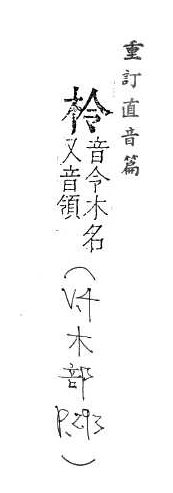 重訂直音篇
柃音令木名又音領(V.4木部P.293)